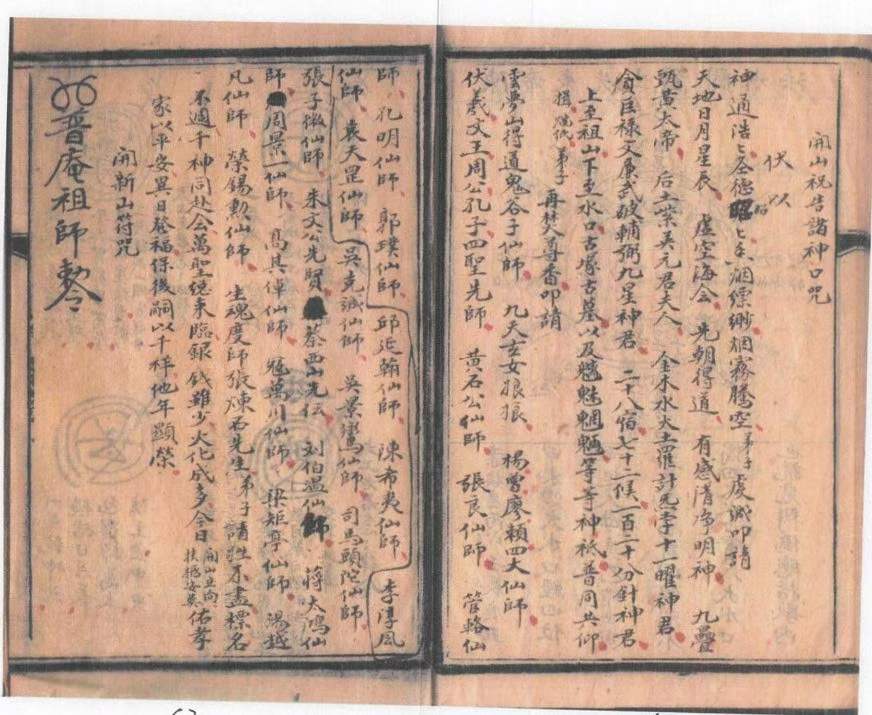 開山祝告諸神口咒
伏以
神通浩々圣德昭々香烟縹緲烟霧騰空弟子虔誠叩請
天地日月星辰 虛空海会 先朝得道 有感清净明神 九疊
甄黄大帝 后土紫英元君夫人 金木水火土羅計炁孛十一曜神君
貪巨祿文廉武破輔弼九星神君 二十八宿七十二候一百二十分針神君
上至祖山下至水口古塚古墓以及魑魅魍魎等等神祇普同共仰
弟子 再焚尊香叩請
雲夢山得道鬼谷子仙師 九天玄女娘娘 楊曾廖賴四大仙師
伏羲文王周公孔子四聖先師 黄石公仙師 張良仙師 管輅仙
師 孔明仙師 郭璞仙師 邱延翰仙師 陳希夷仙師 李淳風
仙師 袁天罡仙師 吳克誠仙師 吳景鸞仙師 司馬頭陀仙師
張子微仙師 朱文公先賢 蔡西山先生 刘伯温仙師 蒋大鴻仙
師 周景一仙師 高其倬仙師 冦萬川仙師 梁矩亭仙師 湯越
凡仙師 榮錫勲仙師 生魂度師張煉石先生弟子請姓不盡標名
不週千神同赴会萬聖總来臨銀錢雖少火化成多今日開山立向扶柩安葵佑孝
家以平安異日發福保後嗣以千祥他年顯榮
開新山符咒
普庵祖師勅